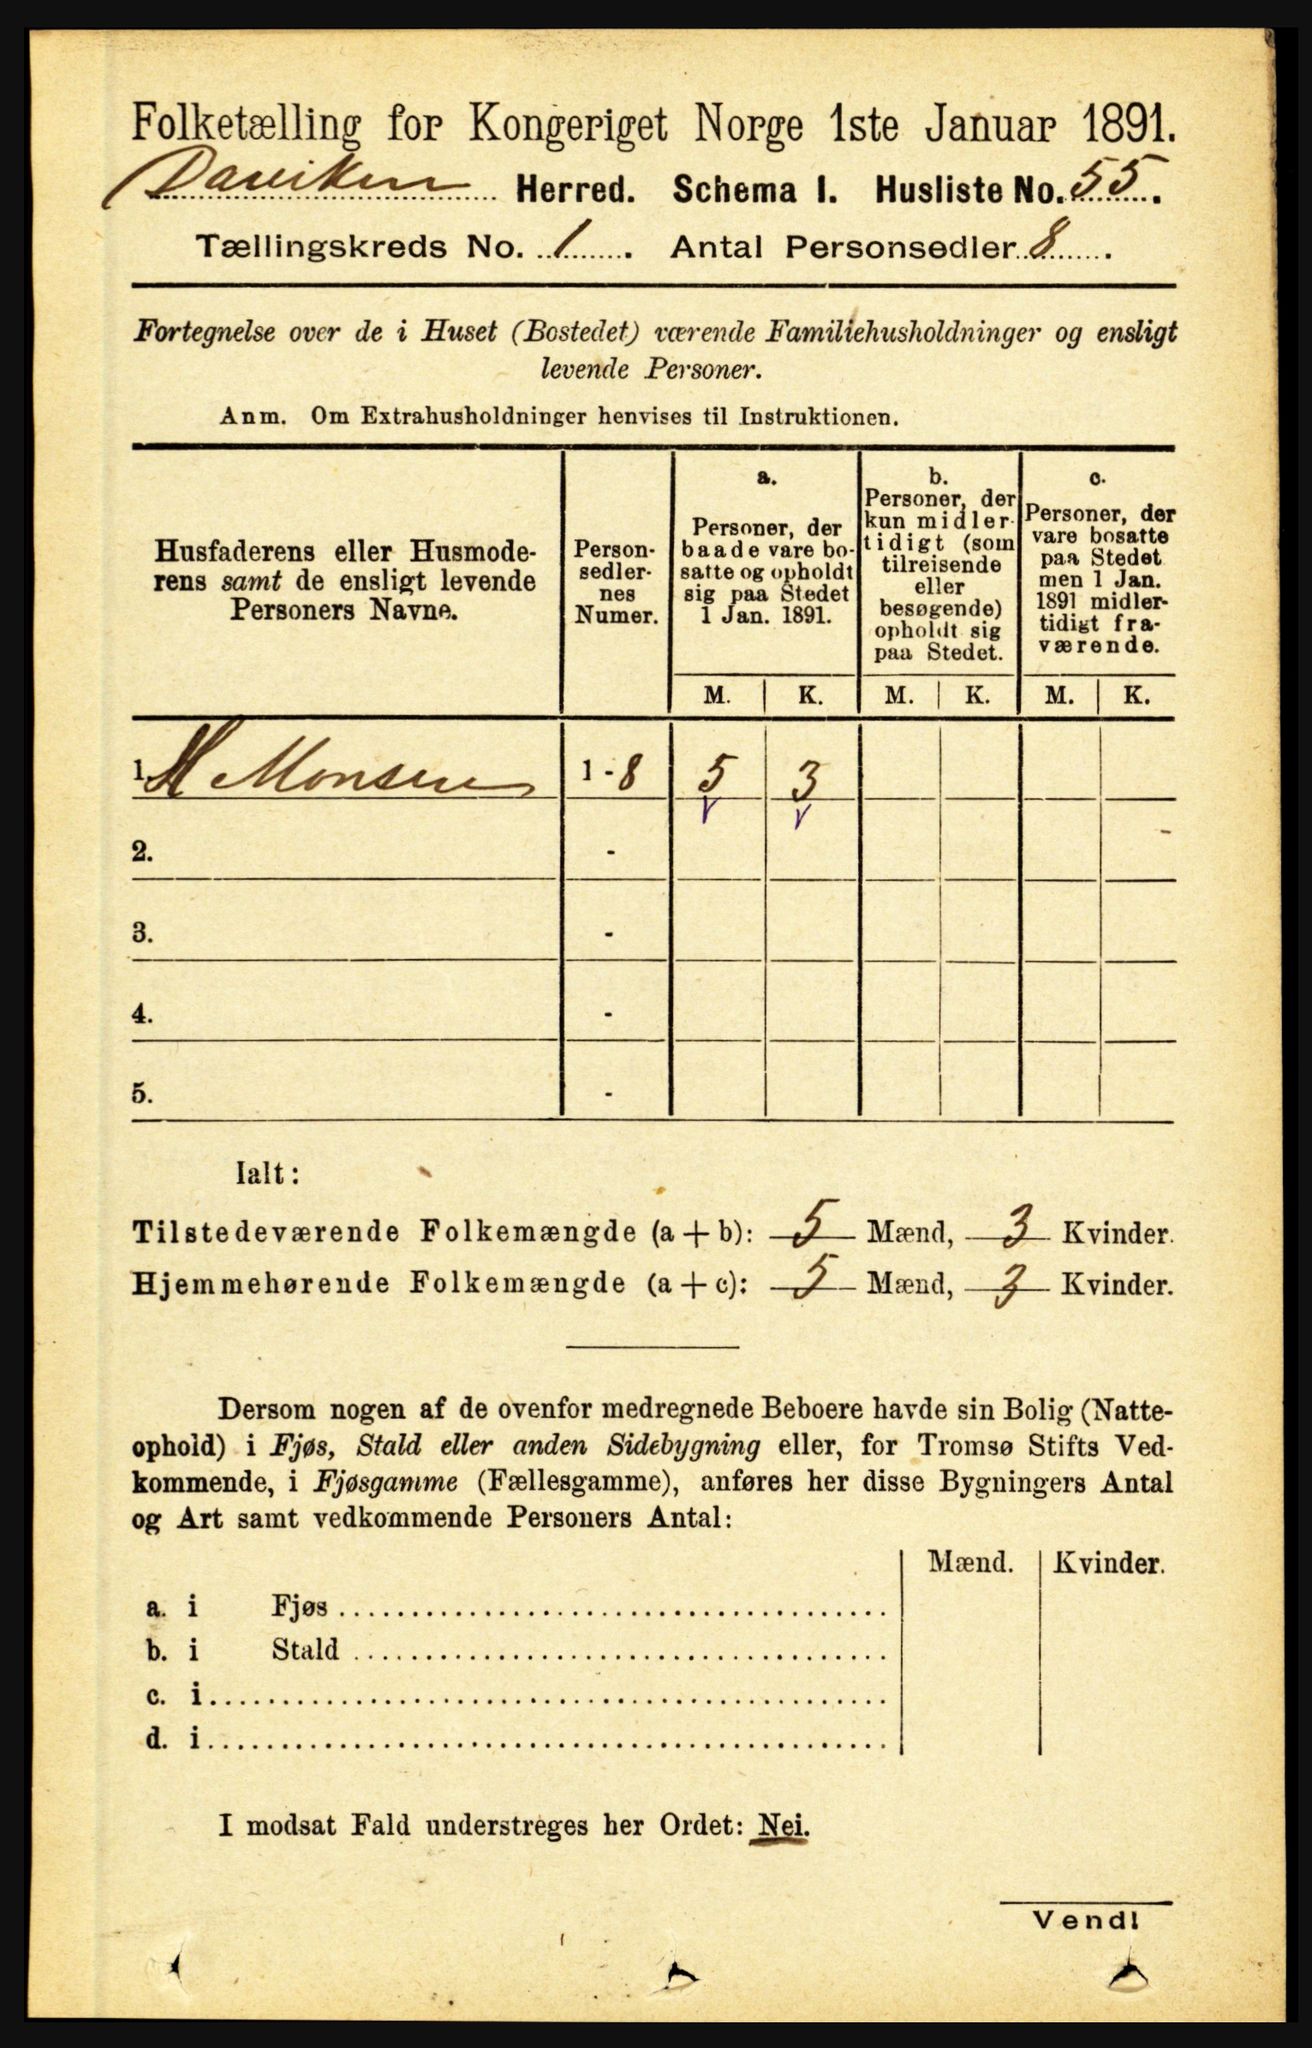 Folketælling for Kongeriget Norge 1ste Januar 1891.
Daviken Herred. Schema I. Husliste No. 55.
Tællingskreds No. 1. Antal Personsedler 8.
Fortegnelse over de i Huset (Bostedet) værende Familiehusholdninger og ensligt
levende Personer.
Anm. Om Extrahusholdninger henvises til Instruktionen.
Husfaderens eller Husmode-
rens samt de ensligt levende
Personers Navne.
Person-
sedler-
nes
Numer.
a.
Personer, der
baade vare bo-
satte og opholdt
sig paa Stedet
1 Jan. 1891.
b.
Personer, der
kun midler-
tidigt (som
tilreisende
eller
besøgende)
opholdt sig
paa Stedet.
c.
Personer, der
vare bosatte
paa Stedet
men 1 Jan.
1891 midler-
tidigt fra-
værende.
M. K. M. K. M. K.
1. H Monsen 1 - 8 5 3
2. -
3. -
4. -
5. -
Ialt:
Tilstedeværende Folkemængde (a + b): 5 Mænd, 3 Kvinder.
Hjemmehørende Folkemængde (a + c): 5 Mænd, 3 Kvinder.
Dersom nogen af de ovenfor medregnede Beboere havde sin Bolig (Natte-
ophold) i Fjøs, Stald eller anden Sidebygning eller, for Tromsø Stifts Ved-
kommende, i Fjøsgamme (Fællesgamme), anføres her disse Bygningers Antal
og Art samt vedkommende Personers Antal:
Mænd. Kvinder.
a. i Fjøs
b. i Stald
c. i
d. i
I modsat Fald understreges her Ordet: Nei.
Vend!